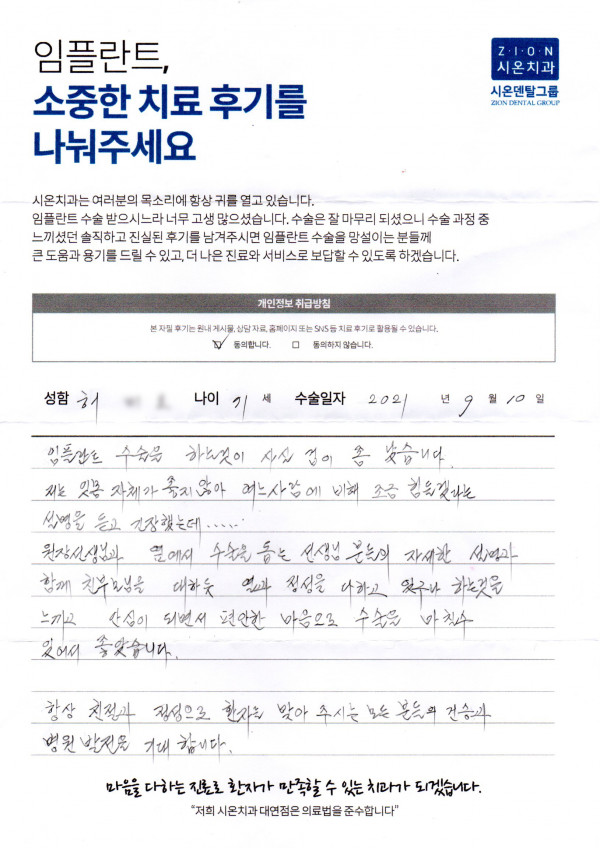 임플란트,
소중한 치료 후기를
나눠주세요
Z·I·O·N
시온치과
시온덴탈그룹
ZION DENTAL GROUP
시온치과는 여러분의 목소리에 항상 귀를 열고 있습니다.
임플란트 수술 받으시느라 너무 고생 많으셨습니다. 수술은 잘 마무리 되셨으니 수술 과정 중
느끼셨던 솔직하고 진실된 후기를 남겨주시면 임플란트 수술을 망설이는 분들께
큰 도움과 용기를 드릴 수 있고, 더 나은 진료와 서비스로 보답할 수 있도록 하겠습니다.
개인정보 취급방침
본 자필 후기는 원내 게시물, 상담 자료, 홈페이지 또는 SNS 등 치료 후기로 활용될 수 있습니다.
동의합니다. 동의하지 않습니다.
성함 허 나이 세 수술일자 2021 년 9 월 10 일
임플란트 수술을 하는것이 사실 겁이 좀 났습니다.
저는 잇몸 자체가 좋지 않아 여느사람에 비해 조금 힘들겠다는
설명을 듣고 긴장했는데......
원장선생님과 옆에서 수술을 돕는 선생님 분들의 자세한 설명과
함께 친부모님을 대하듯 열과 정성을 다하고 있구나 하는것을
느끼고 안심이 되면서 편안한 마음으로 수술을 마칠수
있어서 좋았습니다.
항상 친절과 정성으로 환자를 맞아 주시는 모든 분들의 건승과
병원 발전을 기대 합니다.
마음을 다하는 진료로 환자가 만족할 수 있는 치과가 되겠습니다.
"저희 시온치과 대연점은 의료법을 준수합니다"